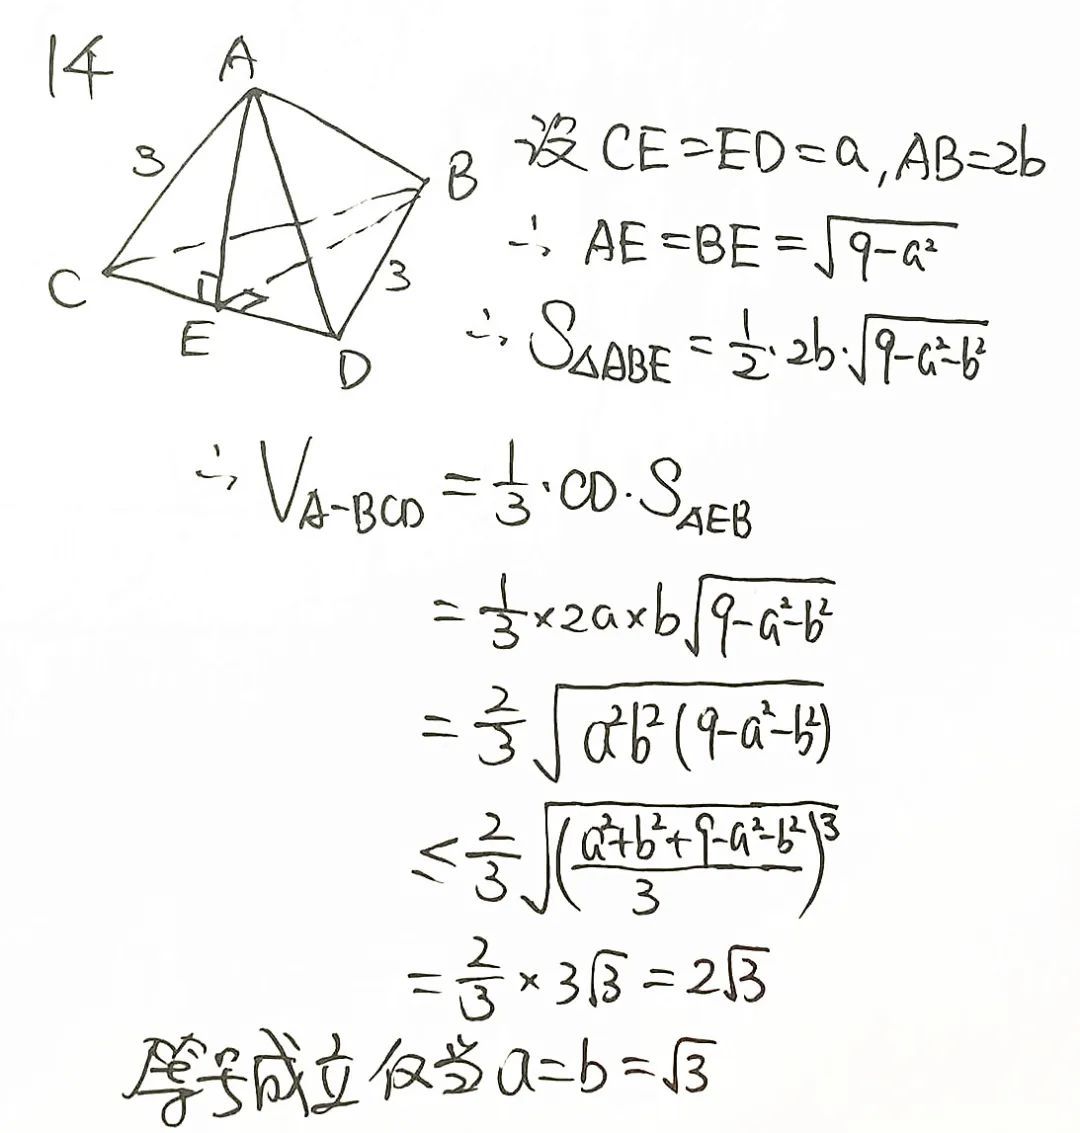 14
A
3
B
C
3
E
D
设CE=ED=a,AB=2b
∴ AE=BE=√(9-a²)
∴ S△ABE = 1/2·2b·√(9-a²-b²)
∴ V_A-BCD = 1/3·CD·S_AEB
= 1/3×2a×b√(9-a²-b²)
= 2/3√(a²b²(9-a²-b²))
≤ 2/3√(((a²+b²+9-a²-b²)/3)³)
= 2/3 × 3√3 = 2√3
等号成立仅当a=b=√3